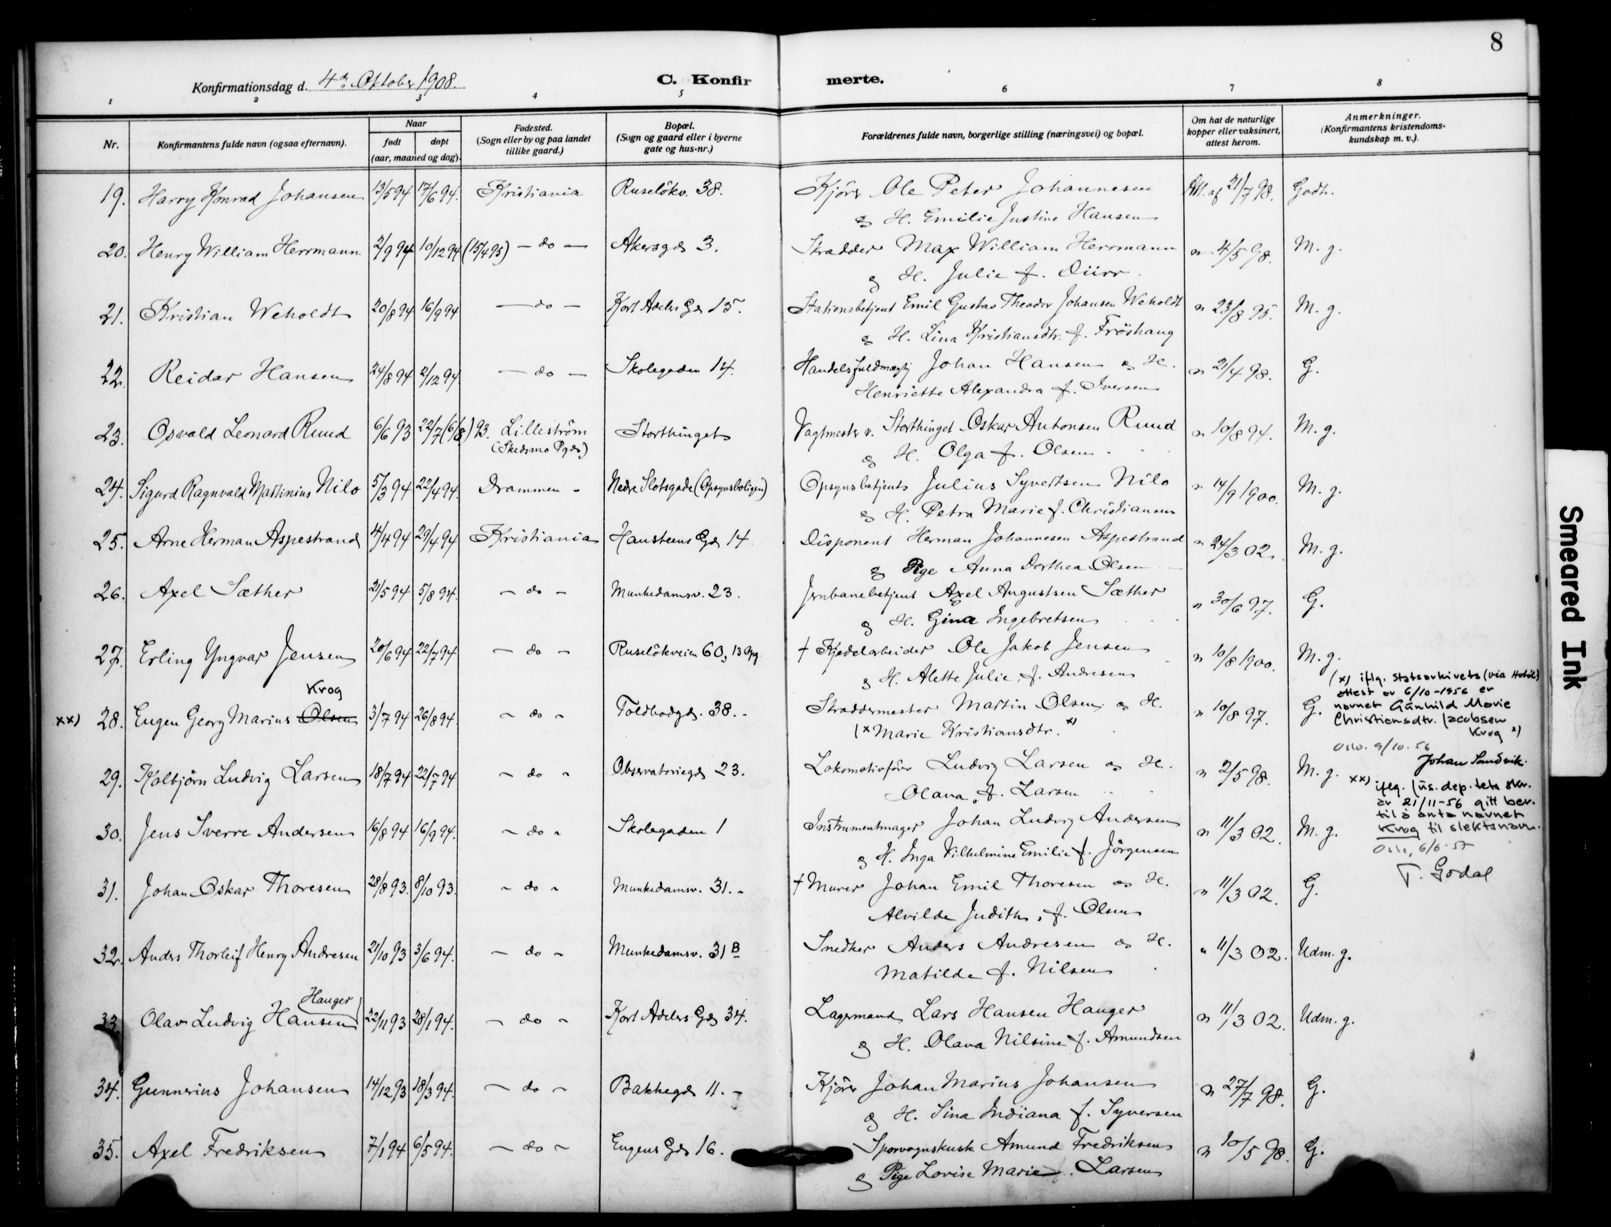 8
Konfirmationsdag d. 4de Oktober 1908.
C. Konfirmerte.
1 2 3 4 5 6 7 8
Nr. Konfirmantens fulde navn (ogsaa efternavn). Naar født døpt (aar, maaned og dag). Fødested. (Sogn eller by og paa landet tillike gaard.) Bopæl. (Sogn og gaard eller i byerne gate og hus-nr.) Forældrenes fulde navn, borgerlige stilling (næringsvei) og bopæl. Om hat de naturlige kopper eller vaksinert, attest herom. Anmerkninger. (Konfirmantens kristendomskundskap m. v.).
19. Harry Konrad Johansen 13/5 94 17/6 94. Kristiania Ruseløkv. 38. Kjører Ole Peter Johannesen Att. af 21/7 98. Godt.
& H. Emilie Justine Hansen
20. Henry William Herrmann 2/9 94 10/12 94 (15/4 95) - do - Akersgd. 3. Skrædder Max William Herrmann " 4/5 98. M. g.
& H. Julie f. Dürr.
21. Kristian Weholdt 20/8 94 16/9 94 - do - Kort Adelers Gd. 15. Stationsbetjent Emil Gustav Theodor Johansen Weholdt " 23/8 95. M. g.
& H. Lina Kristiansdtr. f. Frøshaug
22. Reidar Hansen 24/8 94 2/12 94 - do - Skolegaden 14. Handelsfuldmægtig Johan Hansen og H. " 2/4 98. G.
Henriette Alexandra f. Iversen
23. Osvald Leonard Ruud 6/6 93 22/7 (6/8) 93. Lillestrøm Storthinget Vagtmester v. Storthinget Oskar Antonsen Ruud " 10/8 94. M. g.
(Skedsmo Pgd.) & H. Olga f. Olsen.
24. Sigurd Ragnvald Martinius Nilo 5/3 94 22/4 94. Drammen - Nedre Slotsgade (Opsynsboligen) Opsynsbetjent Julius Syvertsen Nilo " 14/9 1900. M. g.
& H. Petra Marie f. Christiansen
25. Arne Herman Aspestrand 4/4 94 29/4 94 Kristiania Hausteens Gd. 14. Disponent Herman Johannesen Aspestrand " 24/3 02. M. g.
& Pige Anna Dorthea Olsen
26. Axel Sæther 2/5 94 5/8 94. - do - Munkedamsv. 23. Jernbanebetjent Axel Augustsen Sæther " 30/6 97. G.
& H. Gina Ingebretsen
27. Erling Yngvar Jensen 20/6 94 22/7 94 - do - Ruseløkveien 60, 13 Opg. † Kjedelarbeider Ole Jakob Jensen " 10/8 1900. M. g.
& H. Alette Julie f. Andresen
xx) 28. Eugen Georg Marius Olsen Krog 3/7 94 26/8 94 - do - Toldbodgd. 38. - Skræddermester Martin Olsen og H. " 10/8 97. G.
(x Marie Kristiansdtr. x)
(x) iflg. Statsarkivets (via Hotel)
attest av 6/10-1956 er
navnet Gunhild Marie
Christiansdtr. Jacobsen
Krog x)
Oslo. 9/10.56
Johan Sandvik.
29. Kolbjørn Ludvig Larsen 18/7 94 22/7 94 - do - Observatoriegd. 23. Lokomotivfører Ludvig Larsen og H. " 2/5 98. M. g.
Olava, f. Larsen
xx) iflg. Jus.dep.tets skr.
av 21/11-56 gitt bev.
til å anta navnet
Krog til slektsnavn.
Oslo, 6/6-57
T. Godal
30. Jens Sverre Andersen 16/8 94 16/9 94. - do - Skolegaden 1 Instrumentmager Johan Ludvig Andersen " 11/3 02. M. g.
& H. Inga Vilhelmine Emilie f. Jørgensen
31. Johan Oskar Thoresen 28/8 93. 8/10 93. - do - Munkedamsv. 31. - † Murer Johan Emil Thoresen og H. " 11/3 02. G.
Alvilde Judith, f. Olsen
32. Anders Thorleif Henry Andresen 21/10 93 3/6 94. - do - Munkedamsv. 31 B Snedker Anders Andresen og H. " 11/3 02. Udm. g.
Matilde f. Nilsen
33. Olav Ludvig Hansen Hauger 22/11 93 28/1 94. - do - Kort Adelers Gd. 34. Lagermand Lars Hansen Hauger " 11/3 02. Udm. g.
& H. Olava Nilsine f. Amundsen
34. Gunnerius Johansen 14/12 93 18/3 94. - do - Bakkegd. 11. - Kjører Johan Marius Johansen " 27/7 98. G.
& H. Sina Indiana f. Syversen
35. Axel Fredriksen 7/1 94 6/5 94. - do - Eugens Gd. 16. Sporvognskusk Amund Fredriksen " 10/5 98. G.
& Pige Lovise Marie f. Larsen
Smeared Ink